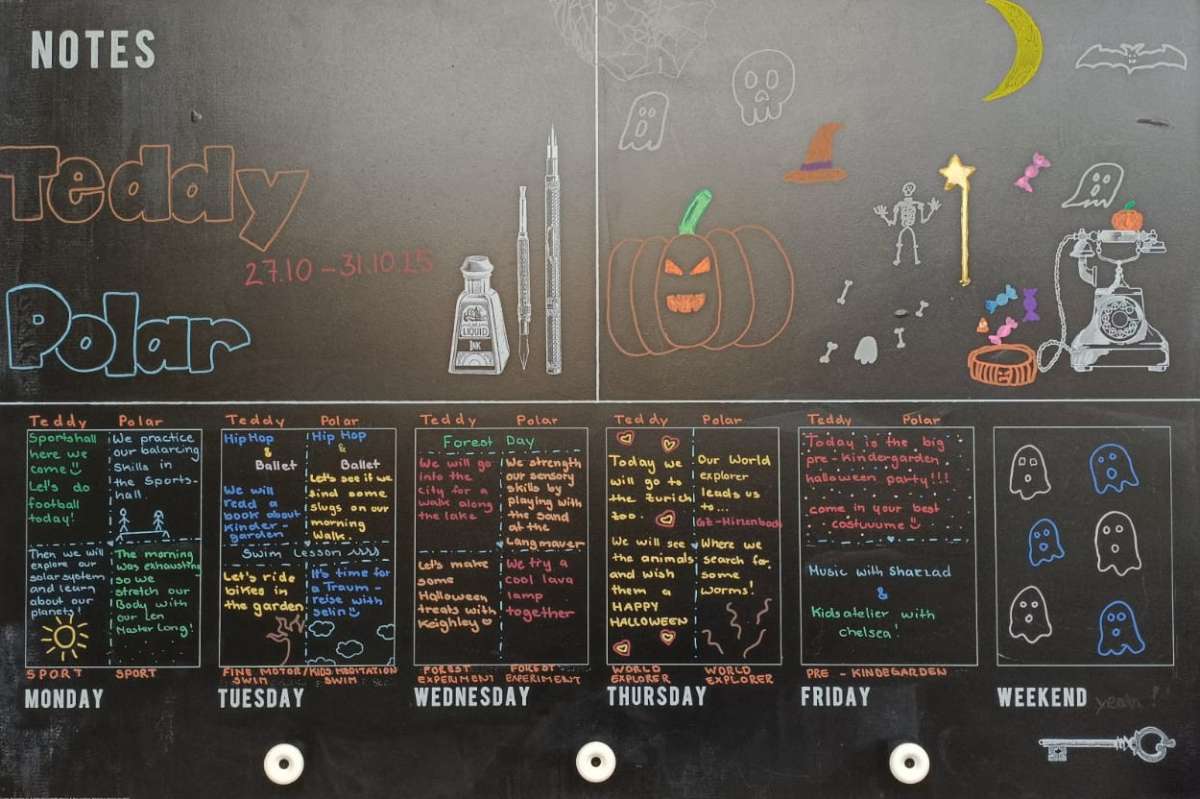 NOTES
Teddy
27.10 – 31.10.25
Polar
LIQUID
INK
Teddy Polar
Sportshall
here we
come!
Let's do
football
today!
We practice
our balancing
skills in
the Sports-
hall.
Then we will
explore our
solar system
and learn
about our
planets!
The morning
was exhausting
so we
stretch our
Body with
our Len
Master Long!
SPORT SPORT
MONDAY
Teddy Polar
Hip Hop
&
Ballet
We will
read a
book about
Kinder-
garden
Hip Hop
&
Ballet
Let's see if we
find some
slugs on our
morning
walk.
Swim Lesson
Let's ride
bikes in
the garden
It's time for
a Traum-
reise with
Selin
FINE MOTOR/KIDS MEDITATION
SWIM SWIM
TUESDAY
Teddy Polar
Forest Day
We will go
into the
city for a
walk along
the lake
We strength
our sensory
skills by
playing with
the sand
at the
Langmauer
Let's make
some
Halloween
treats with
Keighley
We try a
cool lava
lamp
together
FOREST FOREST
EXPERIMENT EXPERIMENT
WEDNESDAY
Teddy Polar
Today we
will go to
the Zurich
zoo
Our World
explorer
leads us
to...
We will see
the animals
and wish
them a
HAPPY
HALLOWEEN
Where we
search for
some
worms!
WORLD WORLD
EXPLORER EXPLORER
THURSDAY
Teddy Polar
Today is the big
pre-Kindergarden
halloween party!!!
come in your best
costuume
Music with Sharzad
&
Kidsatelier with
chelsea!
PRE - KINDEGARDEN
FRIDAY
WEEKEND yeah!